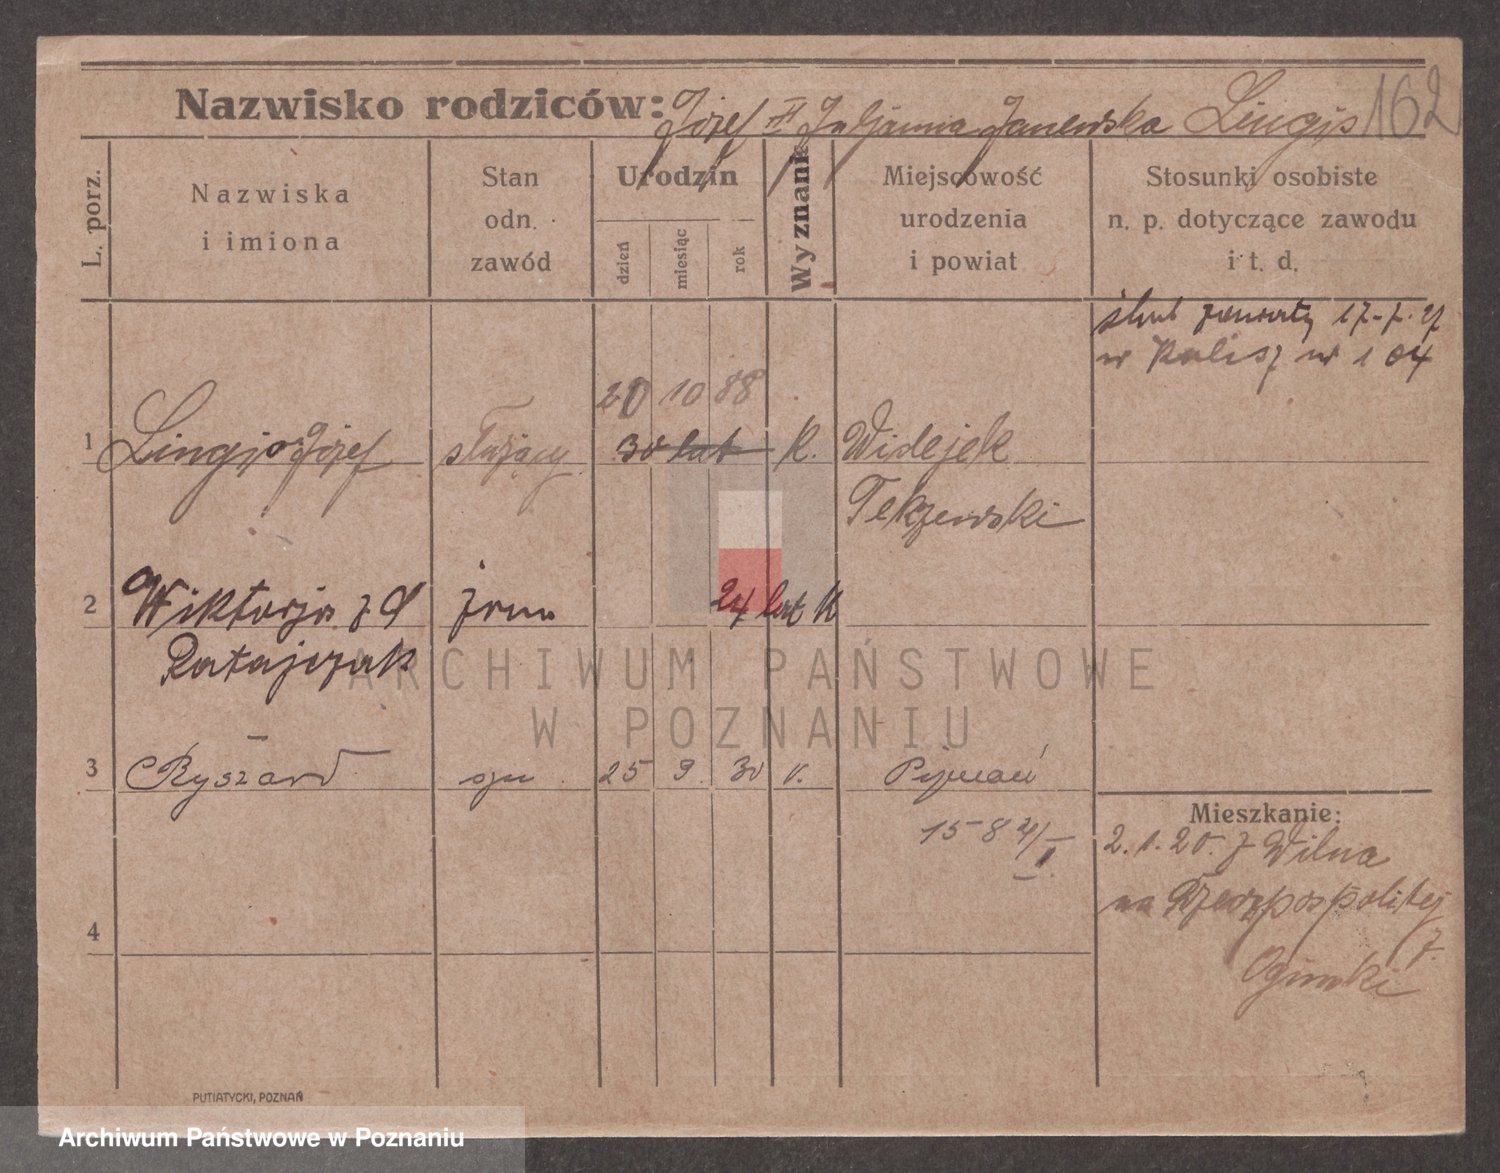 Nazwisko rodziców: Józef Juljanna Janewska Lingjs 162
L. porz.
Nazwiska
i imiona
Stan
odn.
zawód
Urodzin
dzień
miesiąc
rok
Wyznanie
Miejscowość
urodzenia
i powiat
Stosunki osobiste
n. p. dotyczące zawodu
i t. d.
ślub zawarty 17-7-27
w Kalisz nr 104
20 10 88
1 Lingjs Józef służący 30 lat K. Widejek
2 Wiktorja z d żona 24 lat K
Ratajczak
ARCHIWUM PAŃSTWOWE
W POZNANIU
3 Ryszard syn 25 9 30 Poznań
Mieszkanie:
2.1.20. z Wilna
na Rzeczpospolitej 7.
4
PUTIATYCKI, POZNAŃ
Archiwum Państwowe w Poznaniu